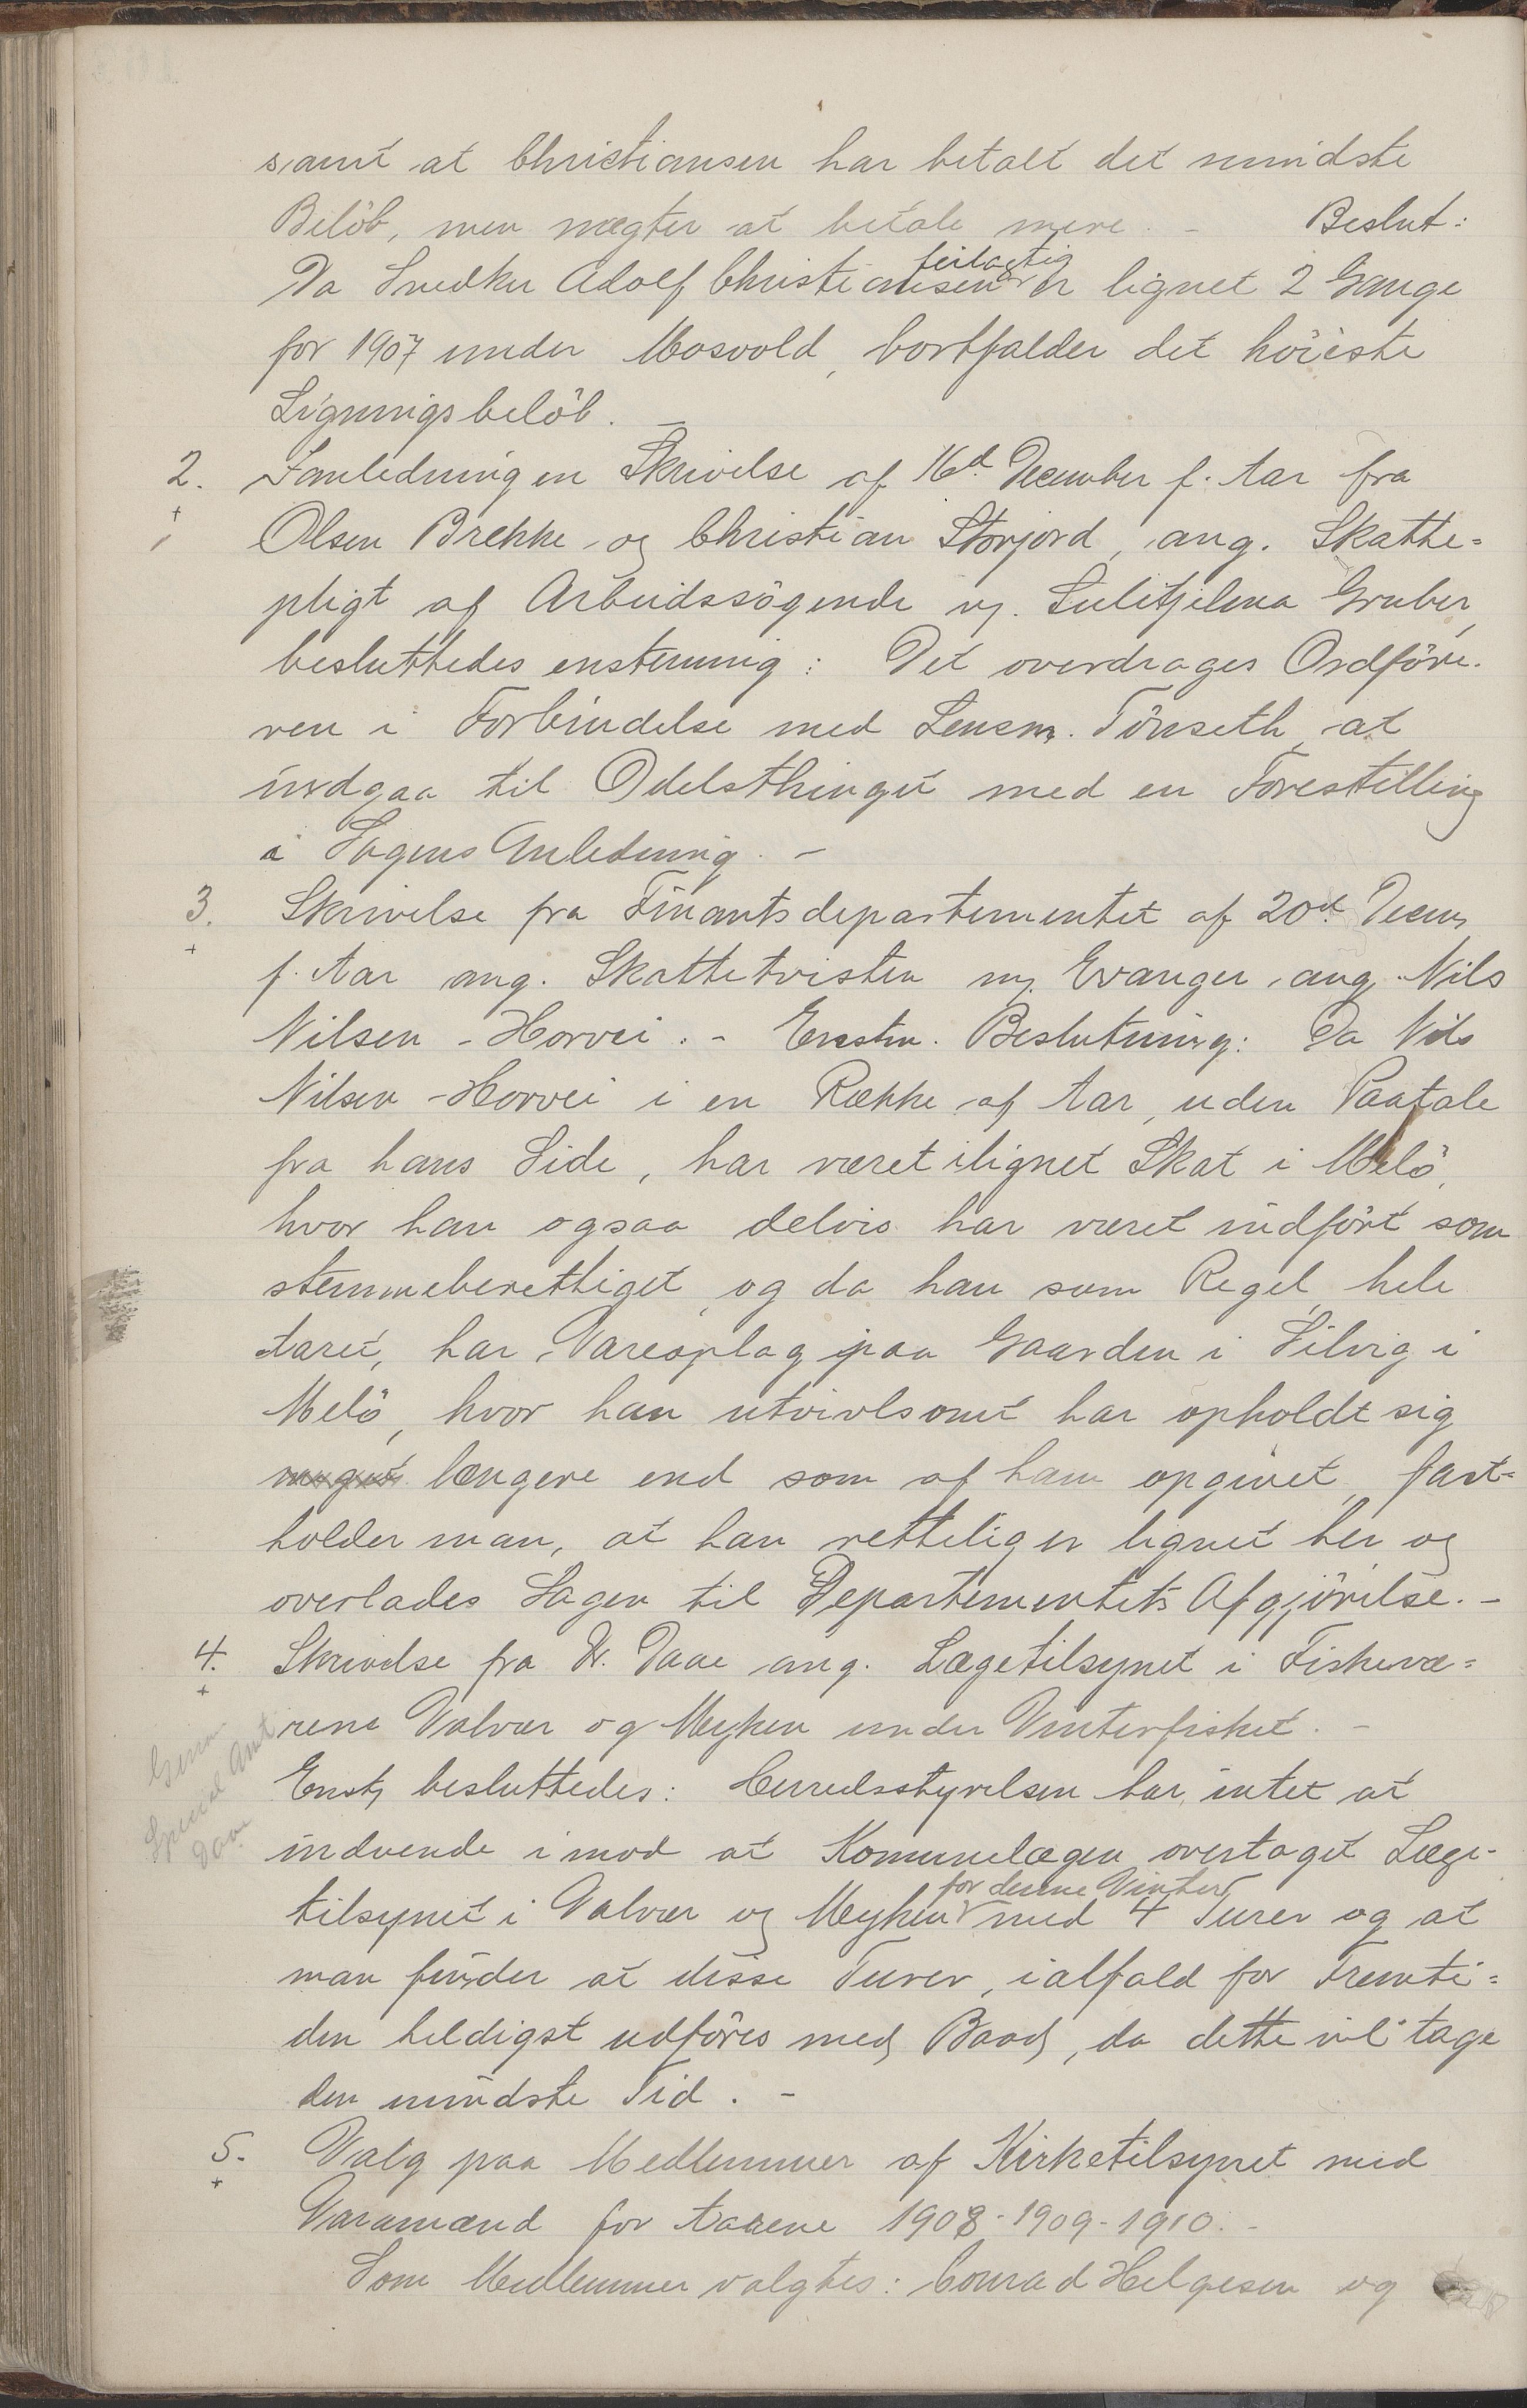 samt at Christiansen har betalt det mindste
Belöb, men nægter at betale mere. - Beslut:
feilagtig
Da Snedker Adolf Christiansen er lignet 2 Gange
for 1907 under Mosvold, bortfalder det höieste
Ligningsbelöb. -
2. I anledning en Skrivelse af 16d December f. Aar fra
Olsen Brekke og Christian Storjord, ang. Skatte=
pligt af Arbeidssögende v. Sulitjelma Gruber,
besluttedes enstemmig: Det overdrages Ordföre-
ren i Forbindelse med Lensm. Tönseth at
indgaa til Odelsthinget med en Forestilling
i Sagens Anledning. -
3. Skrivelse fra Finantsdepartementet af 20d Decm
f. Aar ang. Skattetvisten m. Evanger, ang. Nils
Nilsen Horvei. - Enstm. Beslutning: Da Nils
Nilsen Horvei i en Række af Aar, uden Paatale
fra hans Side, har været ilignet Skat i Melö,
hvor han ogsaa delvis har været indfört som
stemmeberettiget, og da han som Regel, hele
Aaret, har Vareoplag paa Gaarden i Silvig i
Melö, hvor han utvivlsomt har opholdt sig
meget længere end som af ham opgivet, fast=
holder man, at han rettelig er lignet her og
overlades Sagen til Departementets Afgjörelse. -
4. Skrivelse fra Dr. Daae ang. Lægetilsynet i Fiskevæ=
rene Valvær og Myken under Vinterfisket. -
Enst. besluttedes: Herredsstyrelsen har intet at
indvende imod at Kommunelægen overtaget Læge-
for denne Vinter
tilsynet i Valvær og Myken med 4 Turer og at
man finder at disse Turer, ialfald for Fremti=
den heldigst udföres med Baad, da dette vil tage
den mindste Tid. -
5. Valg paa Medlemmer af Kirketilsynet med
Varamænd for Aarene 1908-1909-1910. -
Som Medlemmer valgtes: Conrad Helgesen og